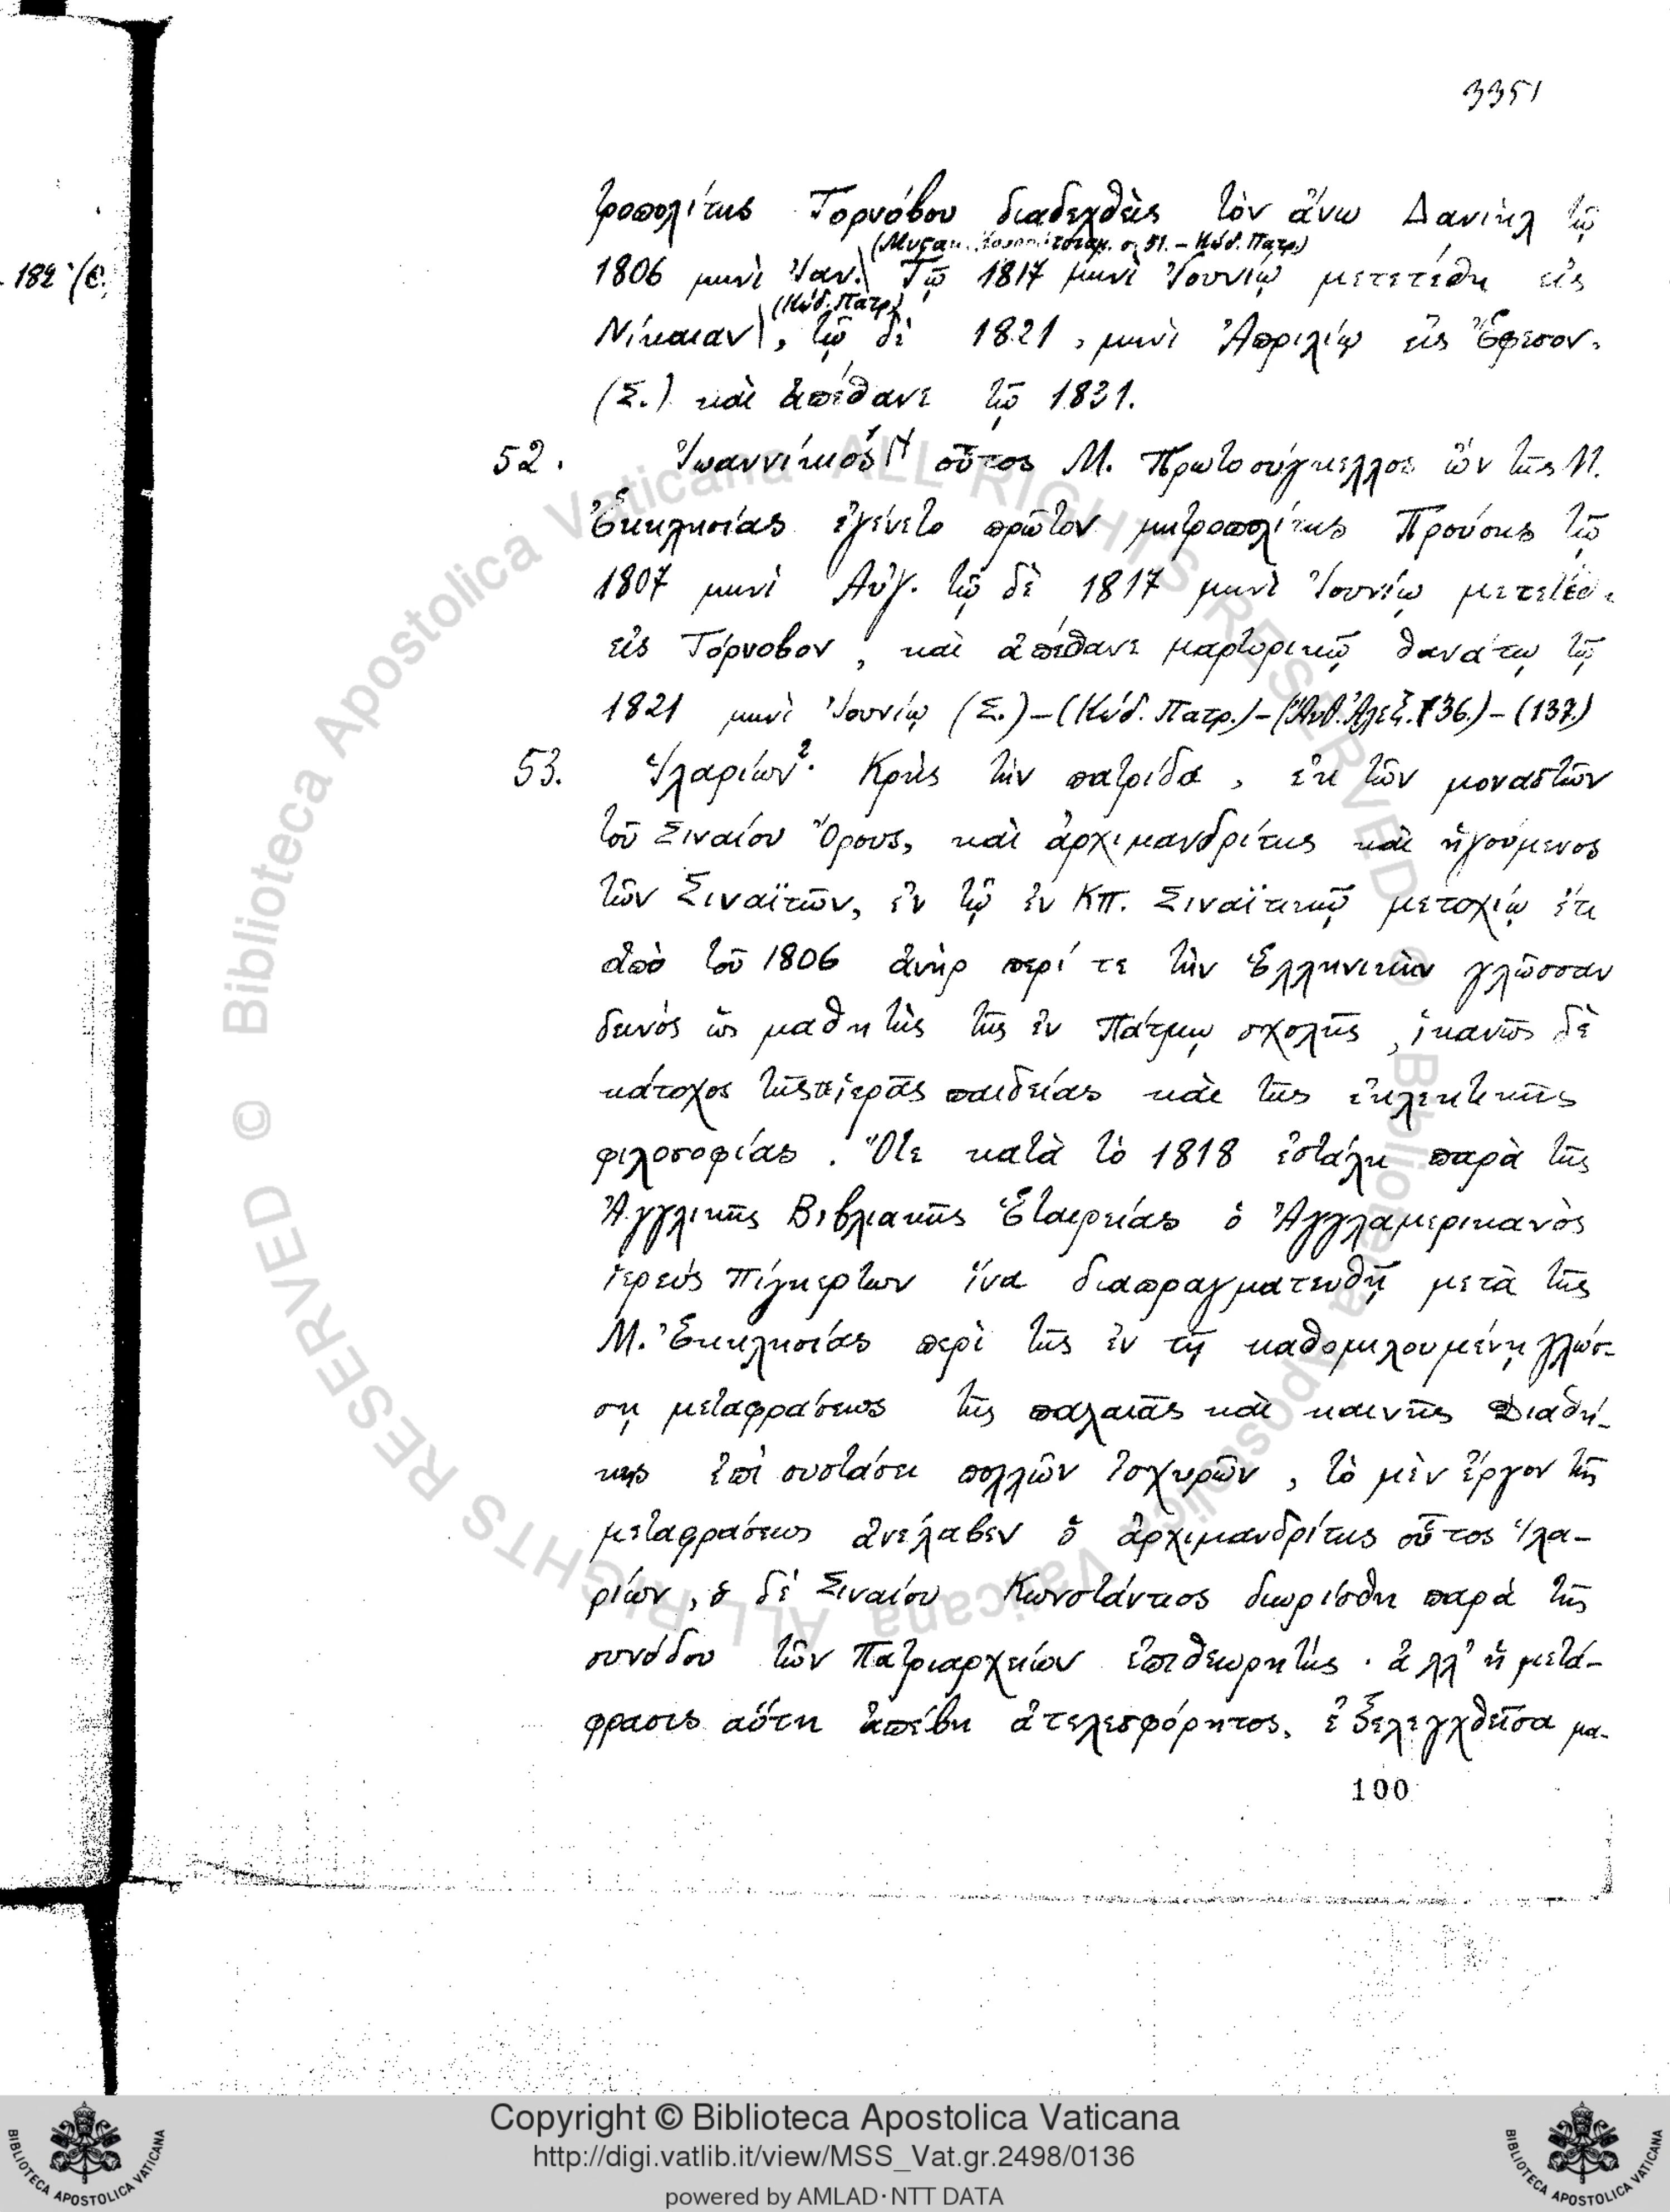 3351
τροπολίτης Τορνόβου διαδεχθεὶς τὸν ἄνω Δανιὴλ τῷ
σ. 51. – Κώδ. Πατρ.)
1806 μηνὶ Ἰαν. Τῷ 1817 μηνὶ Ἰουνίῳ μετετέθη εἰς
(Κώδ. Πατρ.)
Νίκαιαν, τῷ δὲ 1821, μηνὶ Ἀπριλίῳ εἰς Ἔφεσον.
(Σ.) καὶ ἀπέθανε τῷ 1831.
52. Ἰωαννίκιός 1 οὗτος Μ. Πρωτοσύγκελλος ὢν τῆς Μ.
Ἐκκλησίας ἐγένετο πρῶτον μητροπολίτης Προύσης τῷ
1807 μηνὶ Αὐγ. τῷ δὲ 1817 μηνὶ Ἰουνίῳ μετετέθ.
εἰς Τόρνοβον, καὶ ἀπέθανε μαρτυρικῷ θανάτῳ τῷ
1821 μηνὶ Ἰουνίῳ (Σ.) – (Κώδ. Πατρ.) – (Ἀνθ. Ἀλεξ. 136.) – (137.)
53. Ἱλαρίων 2. Κρὴς τὴν πατρίδα, ἐκ τῶν μοναστῶν
τοῦ Σιναίου Ὄρους, καὶ ἀρχιμανδρίτης καὶ ἡγούμενος
τῶν Σιναϊτῶν, ἐν τῷ ἐν ΚΠ. Σιναϊτικῷ μετοχίῳ ἔτι
ἀπὸ τοῦ 1806 ἀνὴρ περί τε τὴν Ἑλληνικὴν γλῶσσαν
δεινός ὡς μαθητὴς τῆς ἐν Πάτμῳ σχολῆς, ἱκανῶς δὲ
κάτοχος τῆς ἱερᾶς παιδείας καὶ τῆς ἐκλεκτικῆς
φιλοσοφίας. Ὅτε κατὰ τὸ 1818 ἐστάλη παρὰ τῆς
Ἀγγλικῆς Βιβλιακῆς Ἑταιρείας ὁ Ἀγγλαμερικανὸς
ἱερεὺς Πίγκερτων ἵνα διαπραγματευθῇ μετὰ τῆς
Μ. Ἐκκλησίας περὶ τῆς ἐν τῇ καθομιλουμένῃ γλώσ-
σῃ μεταφράσεως τῆς παλαιᾶς καὶ καινῆς Διαθή-
κης ἐπὶ συστάσει πολλῶν ἰσχυρῶν, τὸ μὲν ἔργον τῆς
μεταφράσεως ἀνέλαβεν ὁ ἀρχιμανδρίτης οὗτος Ἱλα-
ρίων, ὁ δὲ Σιναίου Κωνστάντιος διωρίσθη παρὰ τῆς
συνόδου τῶν Πατριαρχείων ἐπιθεωρητής. ἀλλ' ἡ μετά-
φρασις αὕτη ἀπέβη ἀτελεσφόρητος, ἐξελεγχθεῖσα μα-
100
Copyright © Biblioteca Apostolica Vaticana
http://digi.vatlib.it/view/MSS_Vat.gr.2498/0136
powered by AMLAD·NTT DATA
BIBLIOTECA APOSTOLICA VATICANA
BIBLIOTECA APOSTOLICA VATICANA
© Biblioteca Apostolica Vaticana ALL RIGHTS RESERVED
© Biblioteca Apostolica Vaticana ALL RIGHTS RESERVED